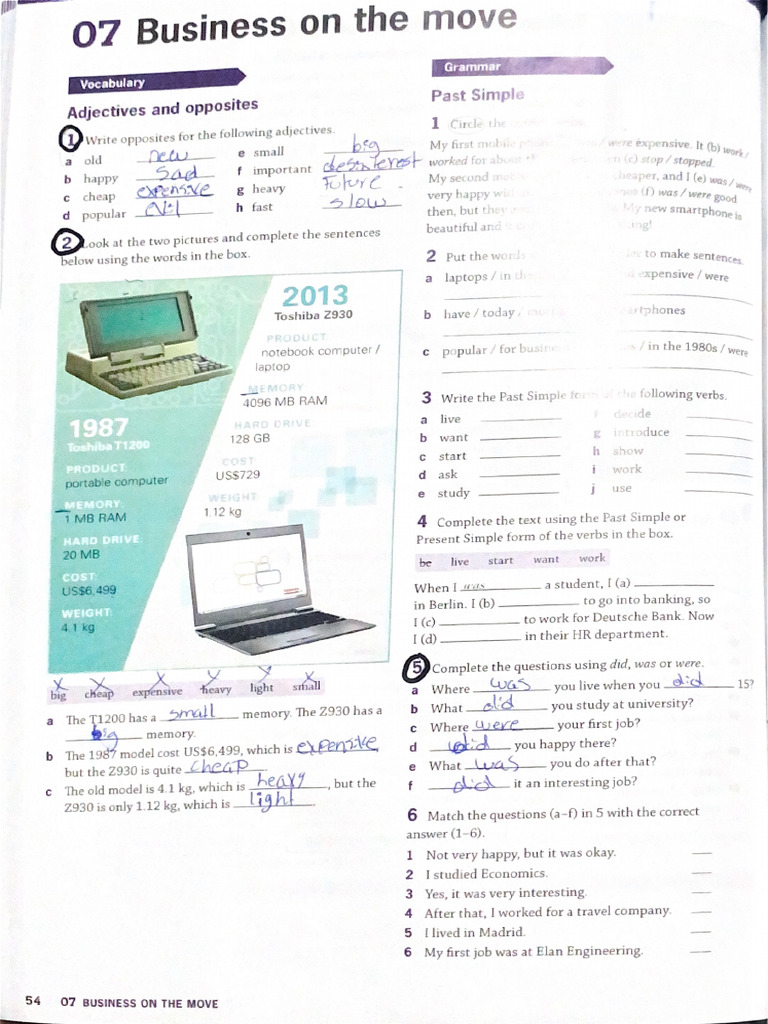 07 Business on the move
Vocabulary
Adjectives and opposites
1 Write opposites for the following adjectives.
a old new
b happy sad
c cheap expensive
d popular
e small big
f important desinterest
g heavy Future
h fast slow
2 Look at the two pictures and complete the sentences
below using the words in the box.
2013
Toshiba Z930
PRODUCT
notebook computer /
laptop
MEMORY
4096 MB RAM
HARD DRIVE
128 GB
COST
US$729
WEIGHT
1.12 kg
1987
Toshiba T1200
PRODUCT
portable computer
MEMORY:
1 MB RAM
HARD DRIVE
20 MB
COST:
US$6,499
WEIGHT:
4.1 kg
big cheap expensive heavy light small
a The T1200 has a small memory. The Z930 has a
big memory.
b The 1987 model cost US$6,499, which is expensive,
but the Z930 is quite cheap.
c The old model is 4.1 kg, which is heavy, but the
Z930 is only 1.12 kg, which is light.
Grammar
Past Simple
1 Circle the
My first mobile / were expensive. It (b) work /
worked for about (c) stop / stopped.
My second cheaper, and I (e) was / were
very happy (f) was / were good
then, but they My new smartphone is
beautiful and
2 Put the words to make sentences.
a laptops / in expensive / were
b have / today /
c popular / for / in the 1980s / were
3 Write the Past Simple form of the following verbs.
a live
b want
c start
d ask
e study
f decide
g introduce
h show
i work
j use
4 Complete the text using the Past Simple or
Present Simple form of the verbs in the box.
be live start want work
When I was a student, I (a)
in Berlin. I (b) to go into banking, so
I (c) to work for Deutsche Bank. Now
I (d) in their HR department.
5 Complete the questions using did, was or were.
a Where was you live when you did 15?
b What did you study at university?
c Where were your first job?
d did you happy there?
e What was you do after that?
f did it an interesting job?
6 Match the questions (a–f) in 5 with the correct
answer (1–6).
1 Not very happy, but it was okay.
2 I studied Economics.
3 Yes, it was very interesting.
4 After that, I worked for a travel company.
5 I lived in Madrid.
6 My first job was at Elan Engineering.
54 07 BUSINESS ON THE MOVE